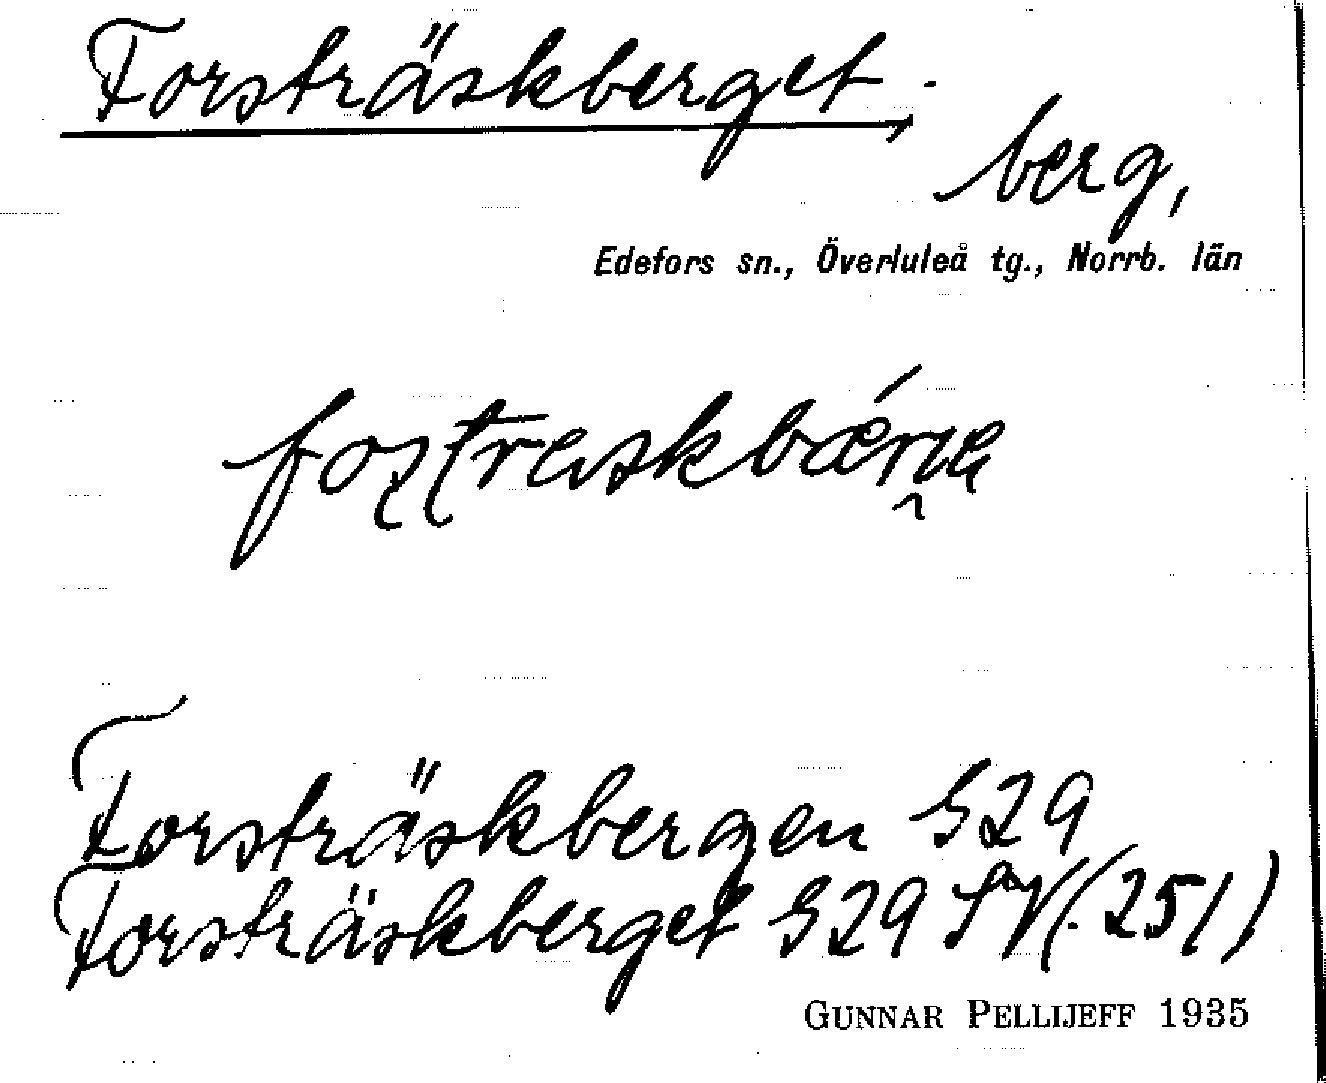 Forsträskberget,
berg,
Edefors sn., Överluleå tg., Norrb. län
Forsträskbergen S29
Forsträskberget S29 SV (251)
GUNNAR PELLIJEFF 1935